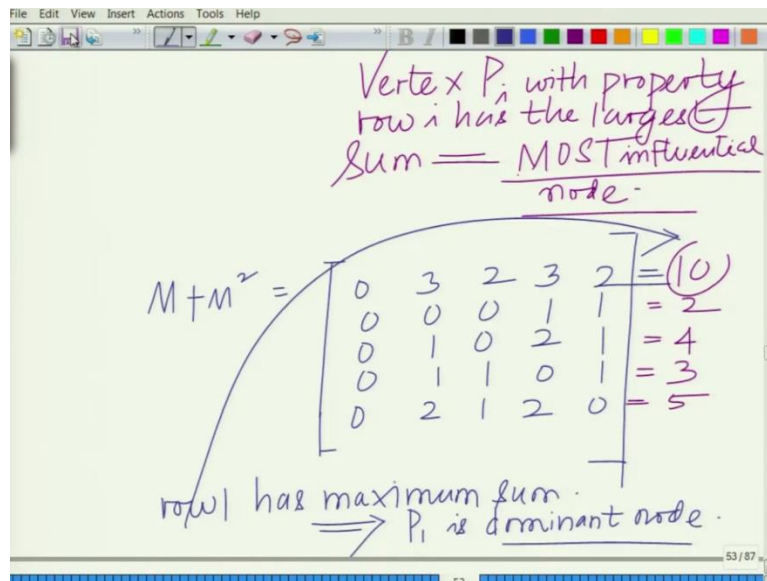 File Edit View Insert Actions Tools Help
Vertex Pi with property
row i has the largest
sum = MOST influential
node.
M+M² =
0 3 2 3 2 = 10
0 0 0 1 1 = 2
0 1 0 2 1 = 4
0 1 1 0 1 = 3
0 2 1 2 0 = 5
row 1 has maximum sum.
⟹ P1 is dominant node.
53/87